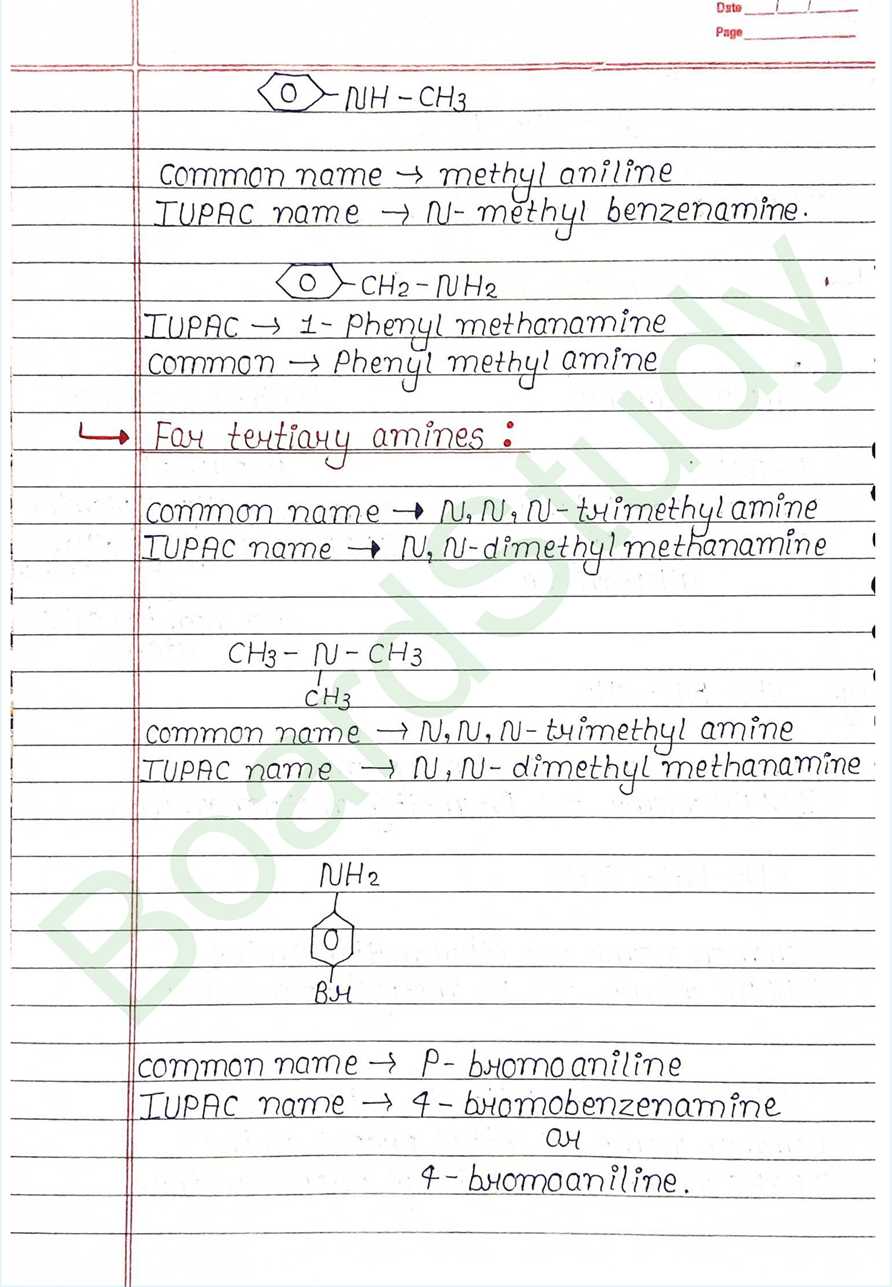 Date / /
Page
NH - CH3
common name → methyl aniline
IUPAC name → N- methyl benzenamine.
CH2 - NH2
IUPAC → 1- Phenyl methanamine
common → Phenyl methyl amine
↳ For tertiary amines :
common name → N, N, N- trimethyl amine
IUPAC name → N, N-dimethyl methanamine
CH3 - N - CH3
CH3
common name → N, N, N- trimethyl amine
IUPAC name → N, N- dimethyl methanamine
NH2
Br
common name → P- bromoaniline
IUPAC name → 4- bromobenzenamine
or
4- bromoaniline.
BoardStudy